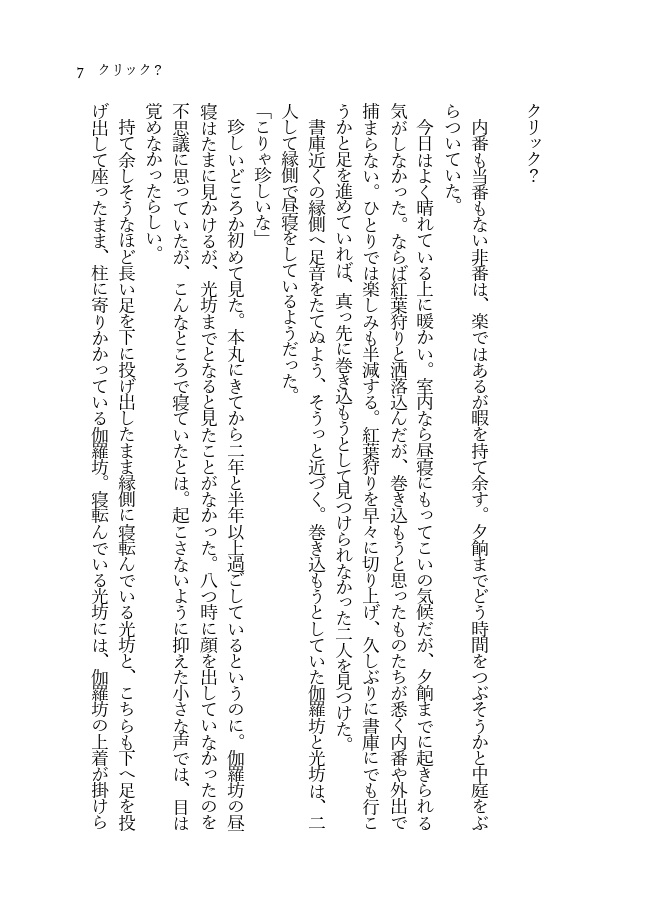 7 クリック？
クリック？
内番も当番もない非番は、楽ではあるが暇を持て余す。夕餉までどう時間をつぶそうかと中庭をぶ
らついていた。
今日はよく晴れている上に暖かい。室内なら昼寝にもってこいの気候だが、夕餉までに起きられる
気がしなかった。ならば紅葉狩りと洒落込んだが、巻き込もうと思ったものたちが悉く内番や外出で
捕まらない。ひとりでは楽しみも半減する。紅葉狩りを早々に切り上げ、久しぶりに書庫にでも行こ
うかと足を進めていれば、真っ先に巻き込もうとして見つけられなかった二人を見つけた。
書庫近くの縁側へ足音をたてぬよう、そうっと近づく。巻き込もうとしていた伽羅坊と光坊は、二
人して縁側で昼寝をしているようだった。
「こりゃ珍しいな」
珍しいどころか初めて見た。本丸にきてから二年と半年以上過ごしているというのに。伽羅坊の昼
寝はたまに見かけるが、光坊までとなると見たことがなかった。八つ時に顔を出していなかったのを
不思議に思っていたが、こんなところで寝ていたとは。起こさないように抑えた小さな声では、目は
覚めなかったらしい。
持て余しそうなほど長い足を下に投げ出したまま縁側に寝転んでいる光坊と、こちらも下へ足を投
げ出して座ったまま、柱に寄りかかっている伽羅坊。寝転んでいる光坊には、伽羅坊の上着が掛けら